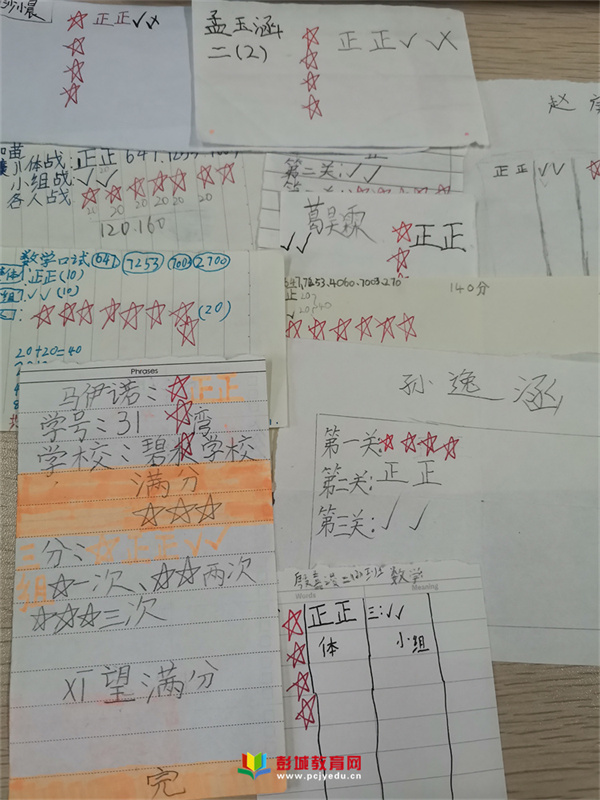 沙小晨
正正√√
孟玉涵
二(2)
正正√√
体战:正正 647.7253.7003
小组战:√√
各人战:
20 20 20 20 20
120.160
第二关:√√
葛昊霖
√√
正正
正正 √√
数学口试 647 7253 7003 2700
体:正正(10)
组:√√(10)
(20)
20+20=40
7253.4060.7003.270
140分
正 20
√ 20
Phrases
马伊诺: 正正
学号:31
学校:碧 学校
满分
三分: 正正√√
组 一次、 两次
三次
望满分
完
孙逸涵
第一关:
第二关:正正
第三关:√√
数学
Words
Meaning
正正 三:√√
体 小组
彭城教育网
www.pcjyedu.cn